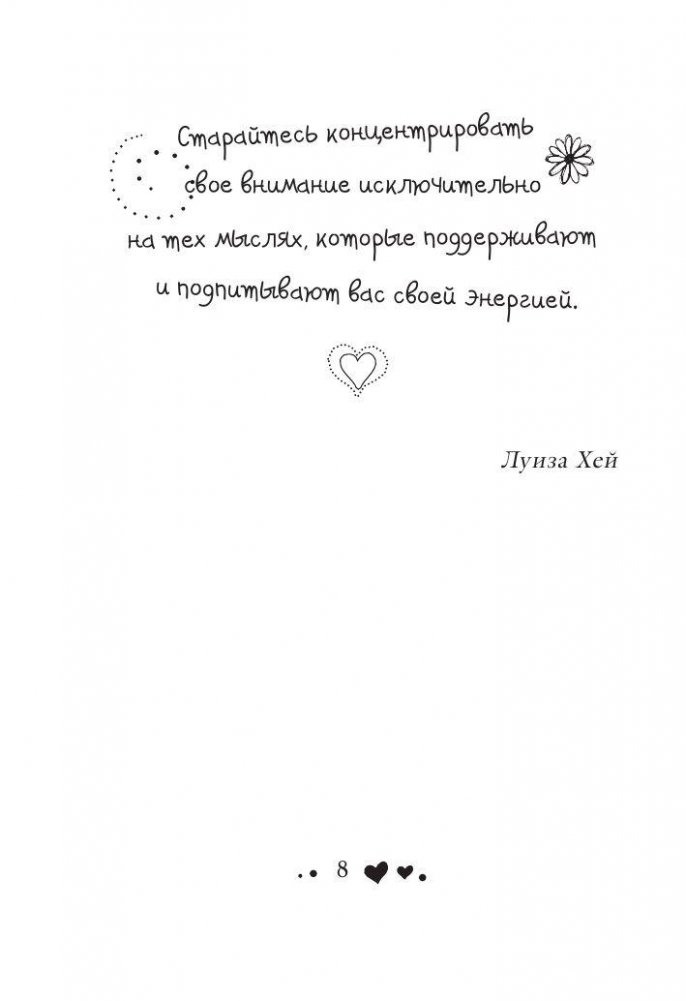 Старайтесь концентрировать
свое внимание исключительно
на тех мыслях, которые поддерживают
и подпитывают вас своей энергией.
Луиза Хей
8